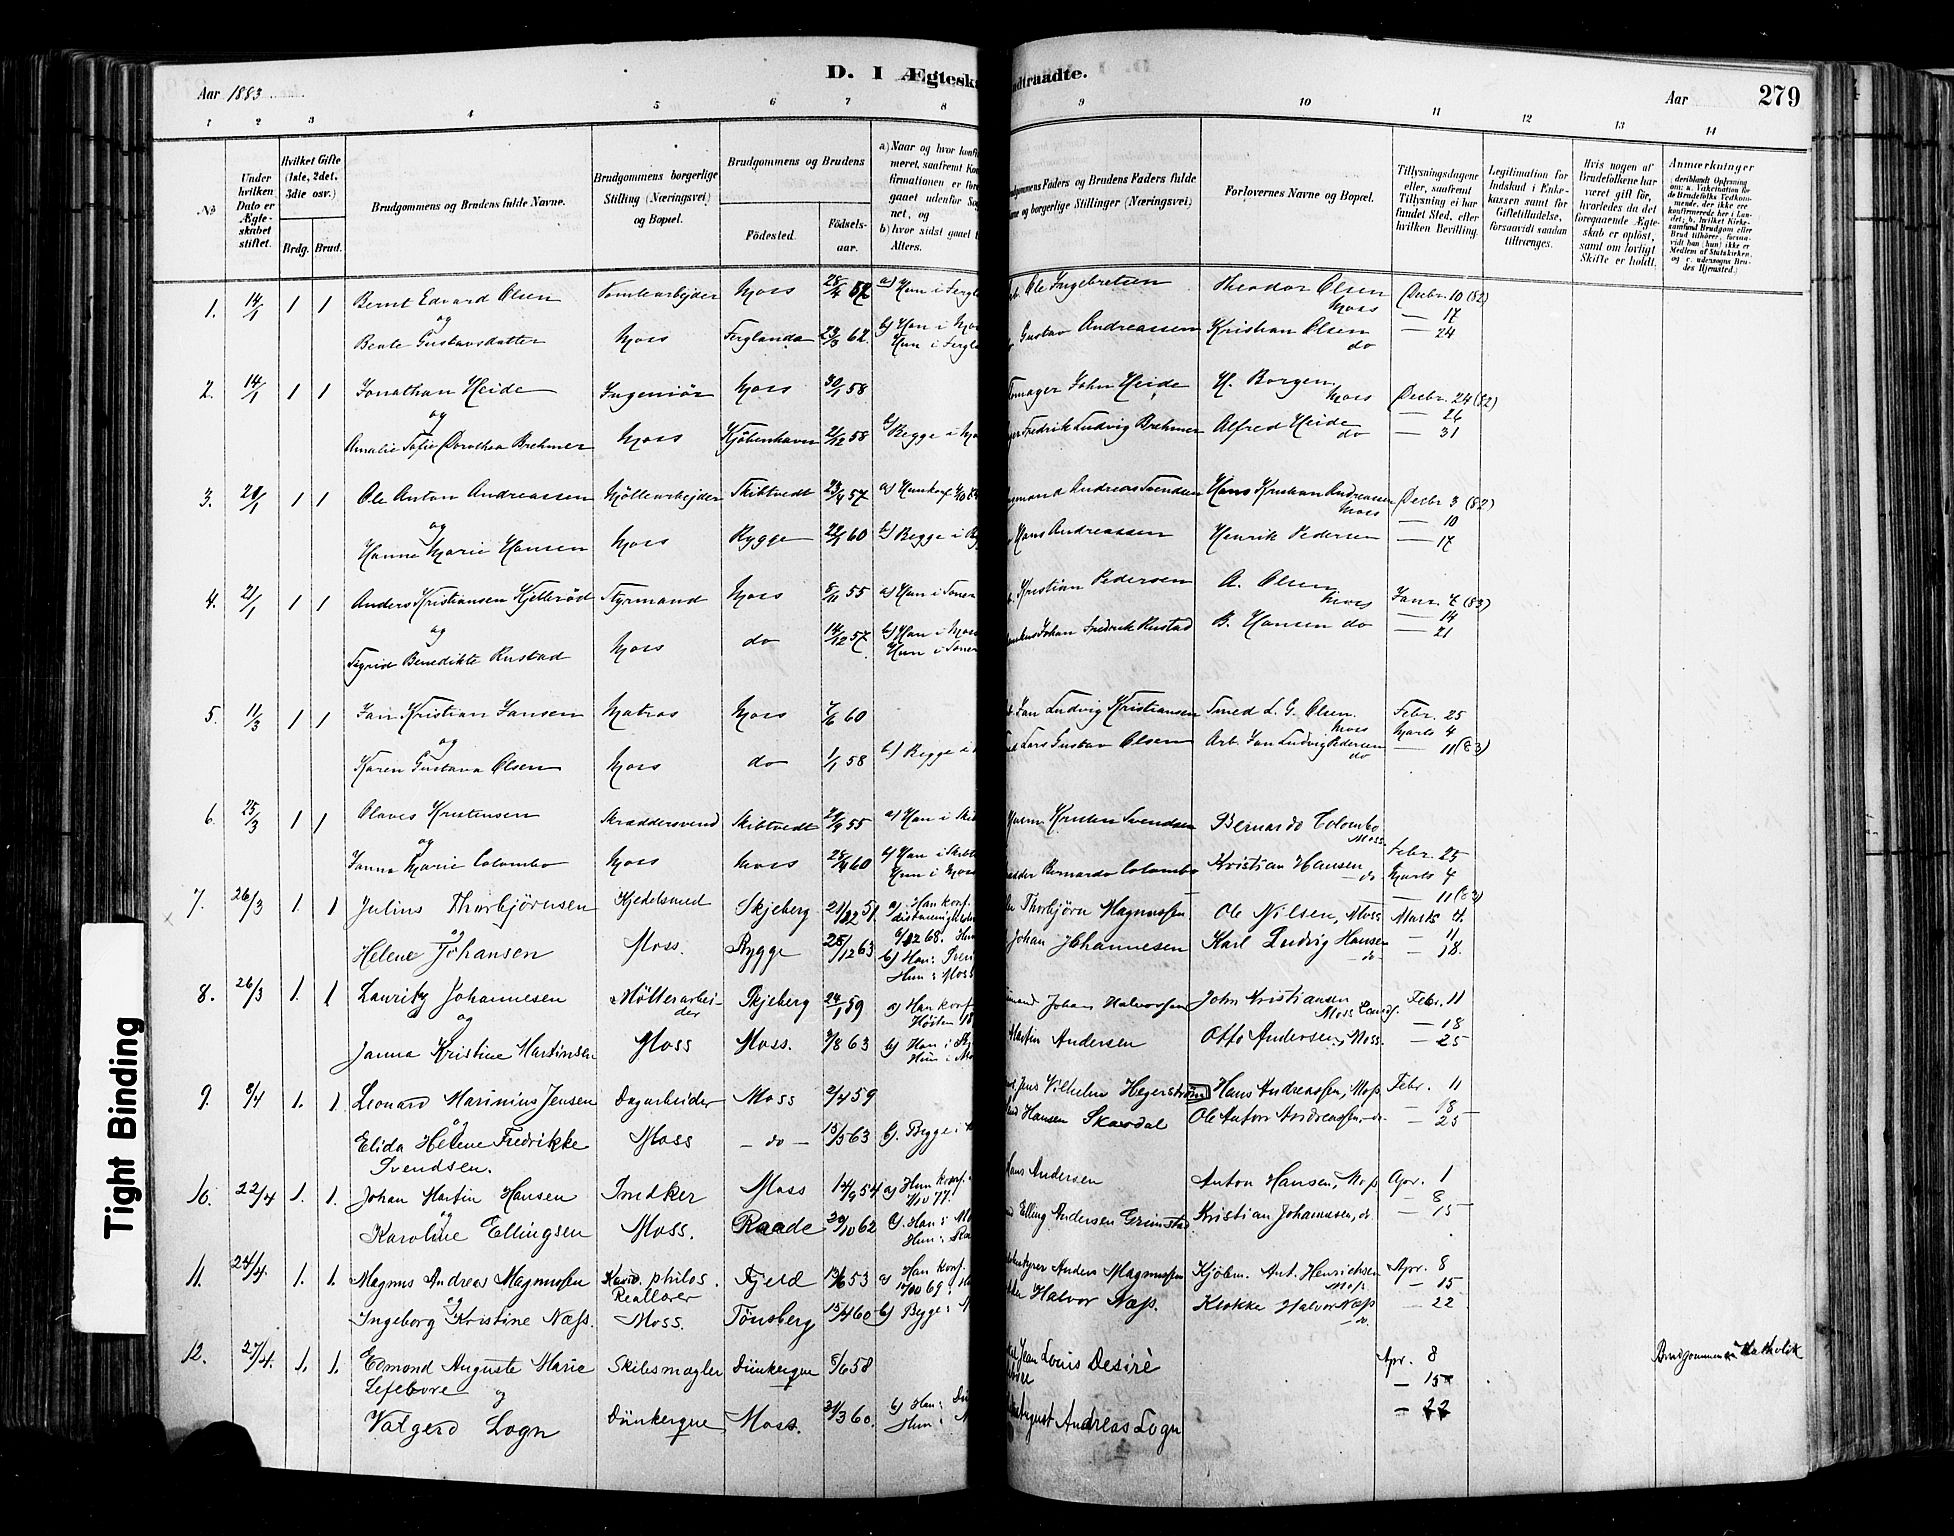 D. I Ægteska
ndtraadte.
Aar 1883
Aar 279
1 2 3 4 5 6 7 8 9 10 11 12 13 14
No
Under hvilken Dato er Ægteskabet stiftet.
Hvilket Gifte (1ste, 2det, 3die osv.)
Brdg. Brud.
Brudgommens og Brudens fulde Navne.
Brudgommens borgerlige Stilling (Næringsvei) og Bopæl.
Brudgommens og Brudens
Fødested. Fødselsaar.
a) Naar og hvor konfir
meret, saafremt Kon
firmationen er fore
gaaet udenfor Sog
net, og
b) hvor sidst gaaet t
Alters.
dgommens Faders og Brudens Faders fulde
ne og borgerlige Stillinger (Næringsvei)
Forlovernes Navne og Bopæl.
Tillysningsdagene eller, saafremt Tillysning ei har fundet Sted, efter hvilken Bevilling.
Legitimation for Indskud i Enkekassen samt for Giftetilladelse, forsaavidt saadan tiltrænges.
Hvis nogen af Brudefolkene har været gift før, hvorledes da det foregaaende Ægteskab er opløst, samt om lovligt Skifte er holdt.
Anmærkninger
1. 14/1 1 1 Bernt Edvard Olsen Tomtearbejder Moss 28/4 57 a) Hun i Tergla Ole Ingebretsen Theodor Olsen Moss Decbr. 10 (82)
og — 17
Beate Gustavsdatter Moss Terglanda 23/3 62 b) Han i Mo Hun i Tergla Gustav Andreassen Kristian Olsen do — 24
2. 14/1 1 1 Jonathan Heide Ingeniør Moss 30/1 58 John Heide H. Borgen Moss Decbr. 24 (82)
og — 26
Amalie Sofie Dorothea Brehmer Moss Kjøbenhavn 2/12 58 b) Begge i Mo Fredrik Ludvig Brehmer Alfred Heide do — 31
3. 21/1 1 1 Ole Anton Andreassen Møllearbejder Skibtvedt 23/4 57 Andreas Svendsen Hans Kristian Andreassen Moss Decbr 3 (82)
og — 10
Hanna Marie Hansen Moss Rygge 60 b) Begge i Hans Andreassen Henrik Pedersen — 17
4. 21/1 1 1 Anders Kristiansen Kjellerød Styrmand Moss 8/11 55 a) Hun i Soner Kristian Pedersen A. Olsen Moss Janr. 7 (83)
og — 14
Sigrid Benedikte Rustad Moss do 14/12 57 b) Han i Moss Hun i Soner Johan Fredrik Rustad B. Hansen do — 21
5. 11/3 1 1 Jan Kristian Jansen Matros Moss 7/6 60 Jan Ludvig Kristiansen Smed L. G. Olsen Moss Febr. 25
og Marts 4
Karen Gustava Olsen Moss do 1/1 58 b) Begge i Lars Gustav Olsen Arb. Jan Ludvig Pedersen do — 11 (83)
6. 25/3 1 1 Olaves Kristensen Skræddersvend Skibtvedt 55 a) Han i Skib Kristen Svendsen Bernardo Colombo Moss
og Febr. 25
Janna Marie Colombo Moss Moss 28/4 60 b) Han i Skibt Hun i Moss Bernardo Colombo Kristian Hansen do Marts 4
— 11 (83)
7. 26/3 1 1 Julius Thorbjørnsen Kjedelsmed Skjeberg 51 a. Han konf. Thorbjørn Magnussen Ole Nilsen, Moss Marts 4.
og — 11
Helene Johansen Moss. Rygge 25/12 63 b) Han: Hun: Moss Johan Johannesen Karl Ludvig Hansen do. — 18.
8. 26/3 1. 1 Lauritz Johannesen Møllerarbeider Skjeberg 24/1 59 a) Han konf. Høsten 18 Johan Halvorssen John Kristiansen Moss Febr. 11
og — 18
Janna Kristine Martinsen Moss Moss. 7/8 63 b) Han i Hun i Mo Martin Andersen Otto Andersen, Moss. — 25
9. 8/4 1. 1. Leonard Marinius Jensen Dagarbeider Moss 2/4 59 Jens Vilhelm Hegerstrøm Hans Andreassen, Moss Febr. 11
og — 18
Elida Helene Fredrikke Svendsen. Moss — do — 15/5 63 b). Begge i Hansen Skardal Ole Anton Andreassen, do — 25
10. 22/4 1. 1. Johan Martin Hansen Snedker Moss 14/9 54 a) Hun konf. 1/10 77. Hans Andersen Anton Hansen, Moss Apr. 1
og — 8
Karoline Ellingsen Moss. Raade 29/10 62 b) Han: Mo Hun: Raa Elling Andersen Grimstad Kristian Johannesen, do. — 15
11. 24/4 1. 1. Magnus Andreas Magnussen Kand. philos. Reallærer Fjeld 13/6 53 a) Han konf. Anders Magnussen Kjøbm. Ant. Henrichsen Moss Apr. 8
og — 15
Ingeborg Kristine Næss. Moss. Tönsberg 15/4 60 b) Begge: Halvor Næss. Klokker Halvor Næss do. — 22
12. 27/4. 1. 1. Edmond Auguste Marie Lefebvre Skibsmægler Dünkerque 8/6 58 Jean Louis Desiré Apr. 8 Brudgommen er Katholik
og — 15
Valgerd Logn Dünkerque Moss. 31/3 60. b) Han: Dü Hun: M August Andreas Logn — 22
Tight Binding